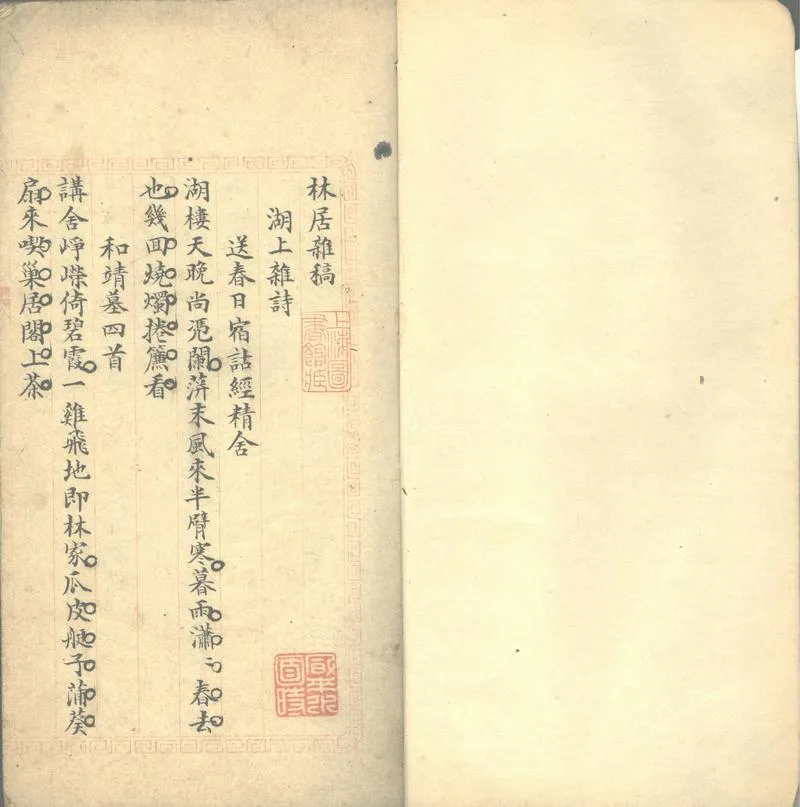 林居雜稿
湖上雜詩
送春日宿詁經精舍
湖樓天晚尚凴闌蓱末風來半臂寒暮雨瀟〻春去
也幾回燒燭捲簾看
和靖墓四首
講舍崢嶸倚碧霞一雞飛地即林家瓜皮艇子蒲葵
扇來喫巢居閣上茶
上海圖
書館藏